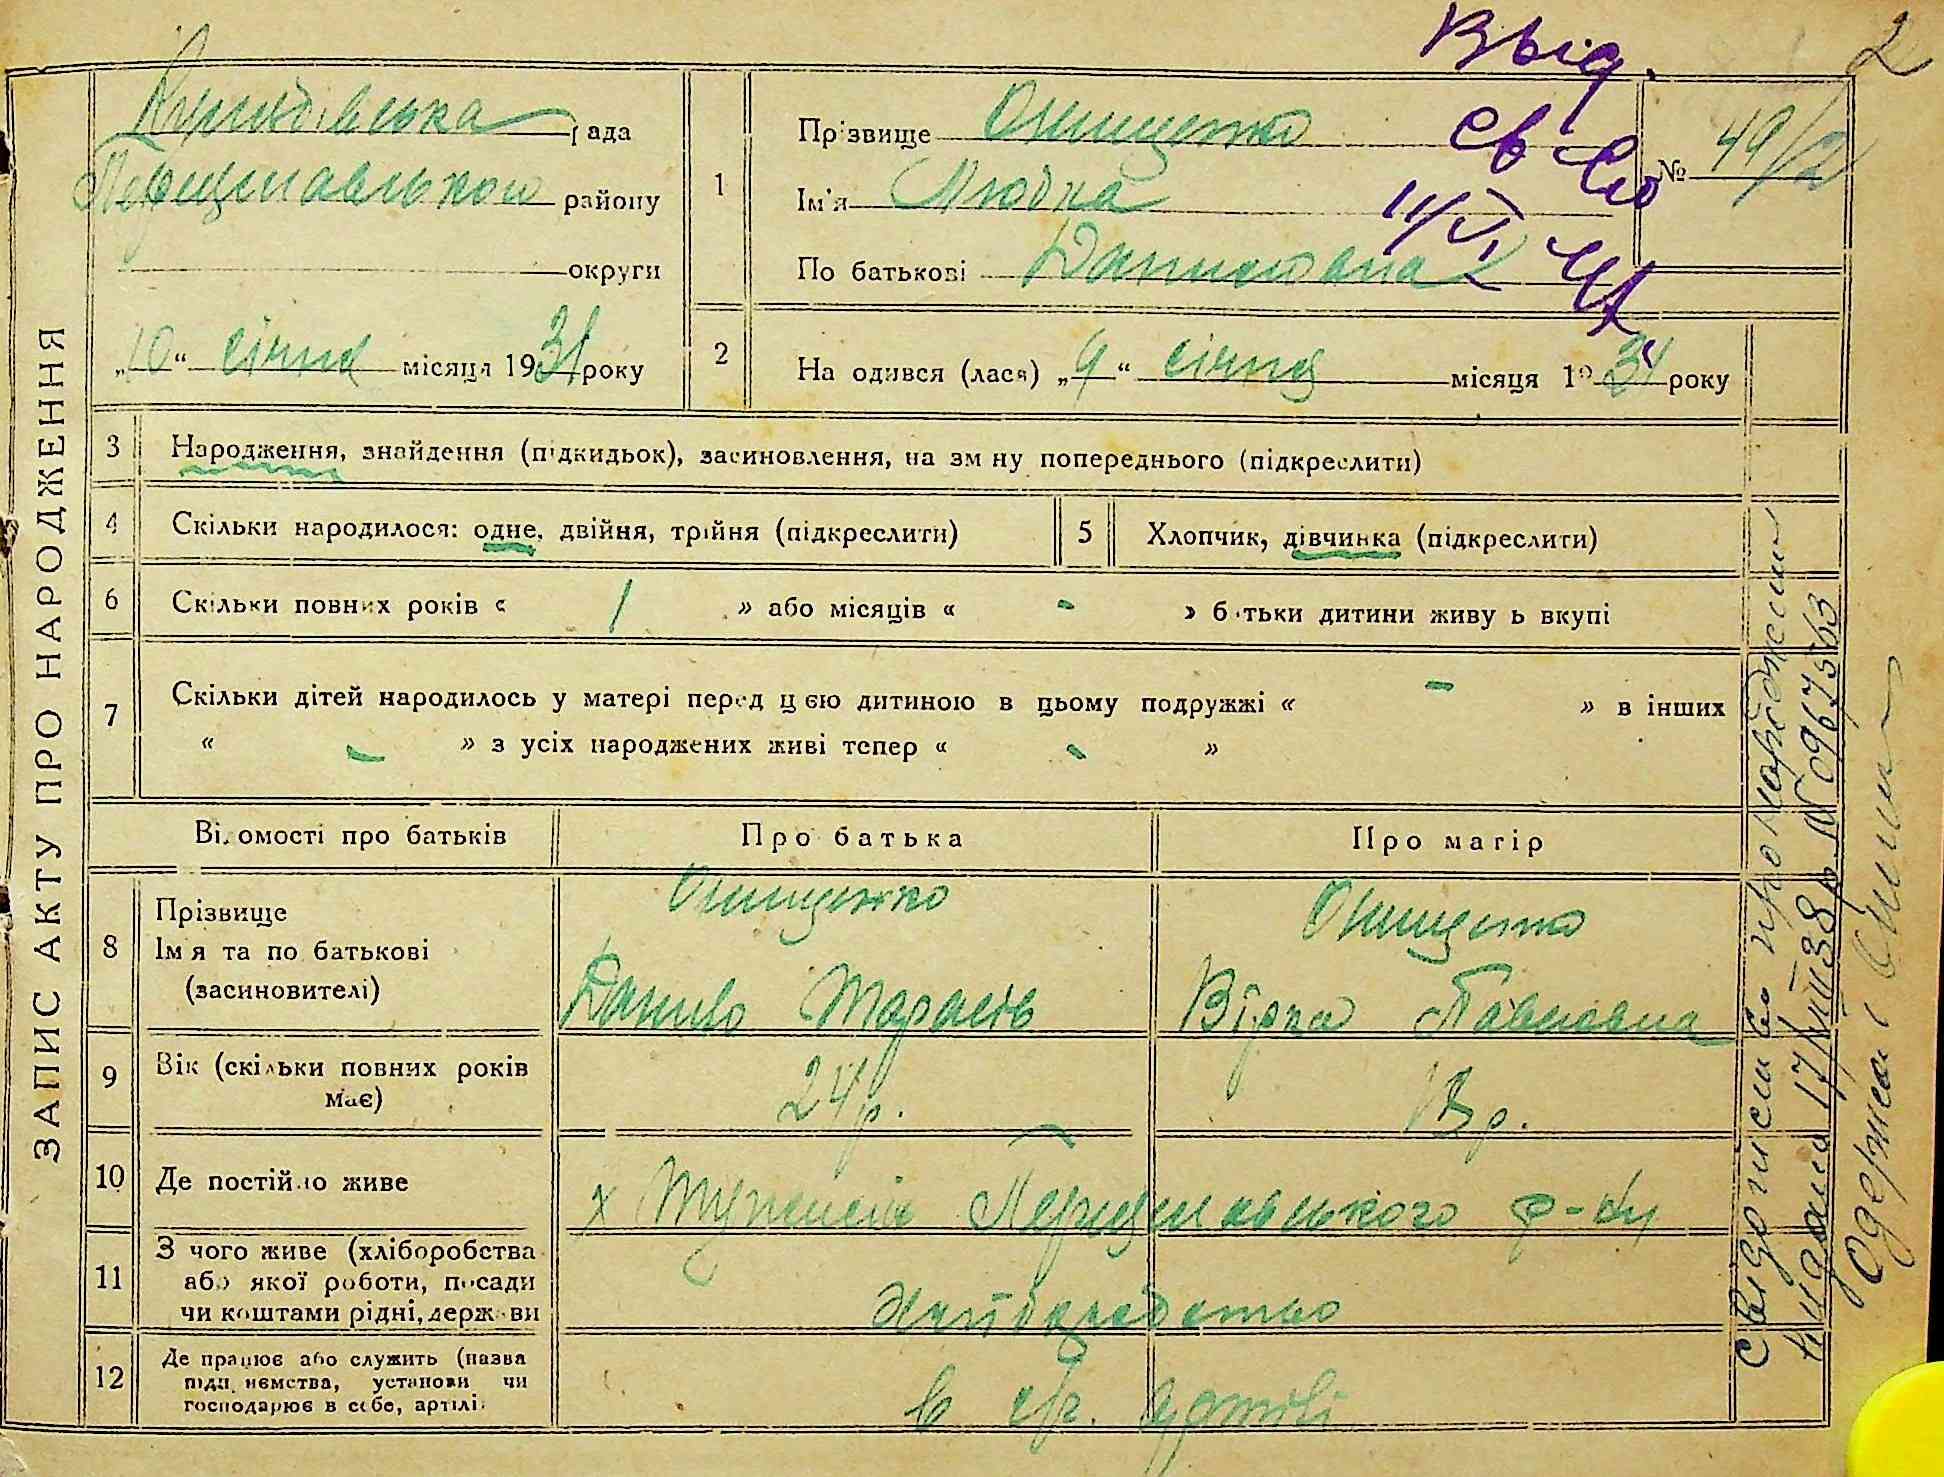 Выд.
2
св-во
11/VI
рада
Перещепавського району
округи
„10“ січня місяця 1931 року
1
Прізвище Онищенко
Ім'я Любка
По батькові Даниловна
№ 49/2
2
Народився (лася) „9“ січня місяця 1931 року
ЗАПИС АКТУ ПРО НАРОДЖЕННЯ
3 Народження, знайдення (підкидьок), засиновлення, на зміну попереднього (підкреслити)
4 Скільки народилося: одне, двійня, трійня (підкреслити)
5 Хлопчик, дівчинка (підкреслити)
6 Скільки повних років « 1 » або місяців « - » батьки дитини живуть вкупі
7 Скільки дітей народилось у матері перед цією дитиною в цьому подружжі « - » в інших
« - » з усіх народжених живі тепер « - »
Відомості про батьків
Про батька
Про матір
8 Прізвище
Ім'я та по батькові
(засиновителі)
Онищенко
Данило Тарасів
Онищенко
Вірка Павловна
9 Вік (скільки повних років
має)
24 р.
18 р.
10 Де постійно живе
х Перещепавського р-ну
11 З чого живе (хліборобства
або якої роботи, посади
чи коштами рідні, держави
Хліборобство
12 Де працює або служить (назва
підприємства, установи чи
господарює в себе, артілі
в с/г. артілі
Свідоцтво про народження
видано 17/VIII 38 р. № 0967563
Одержал